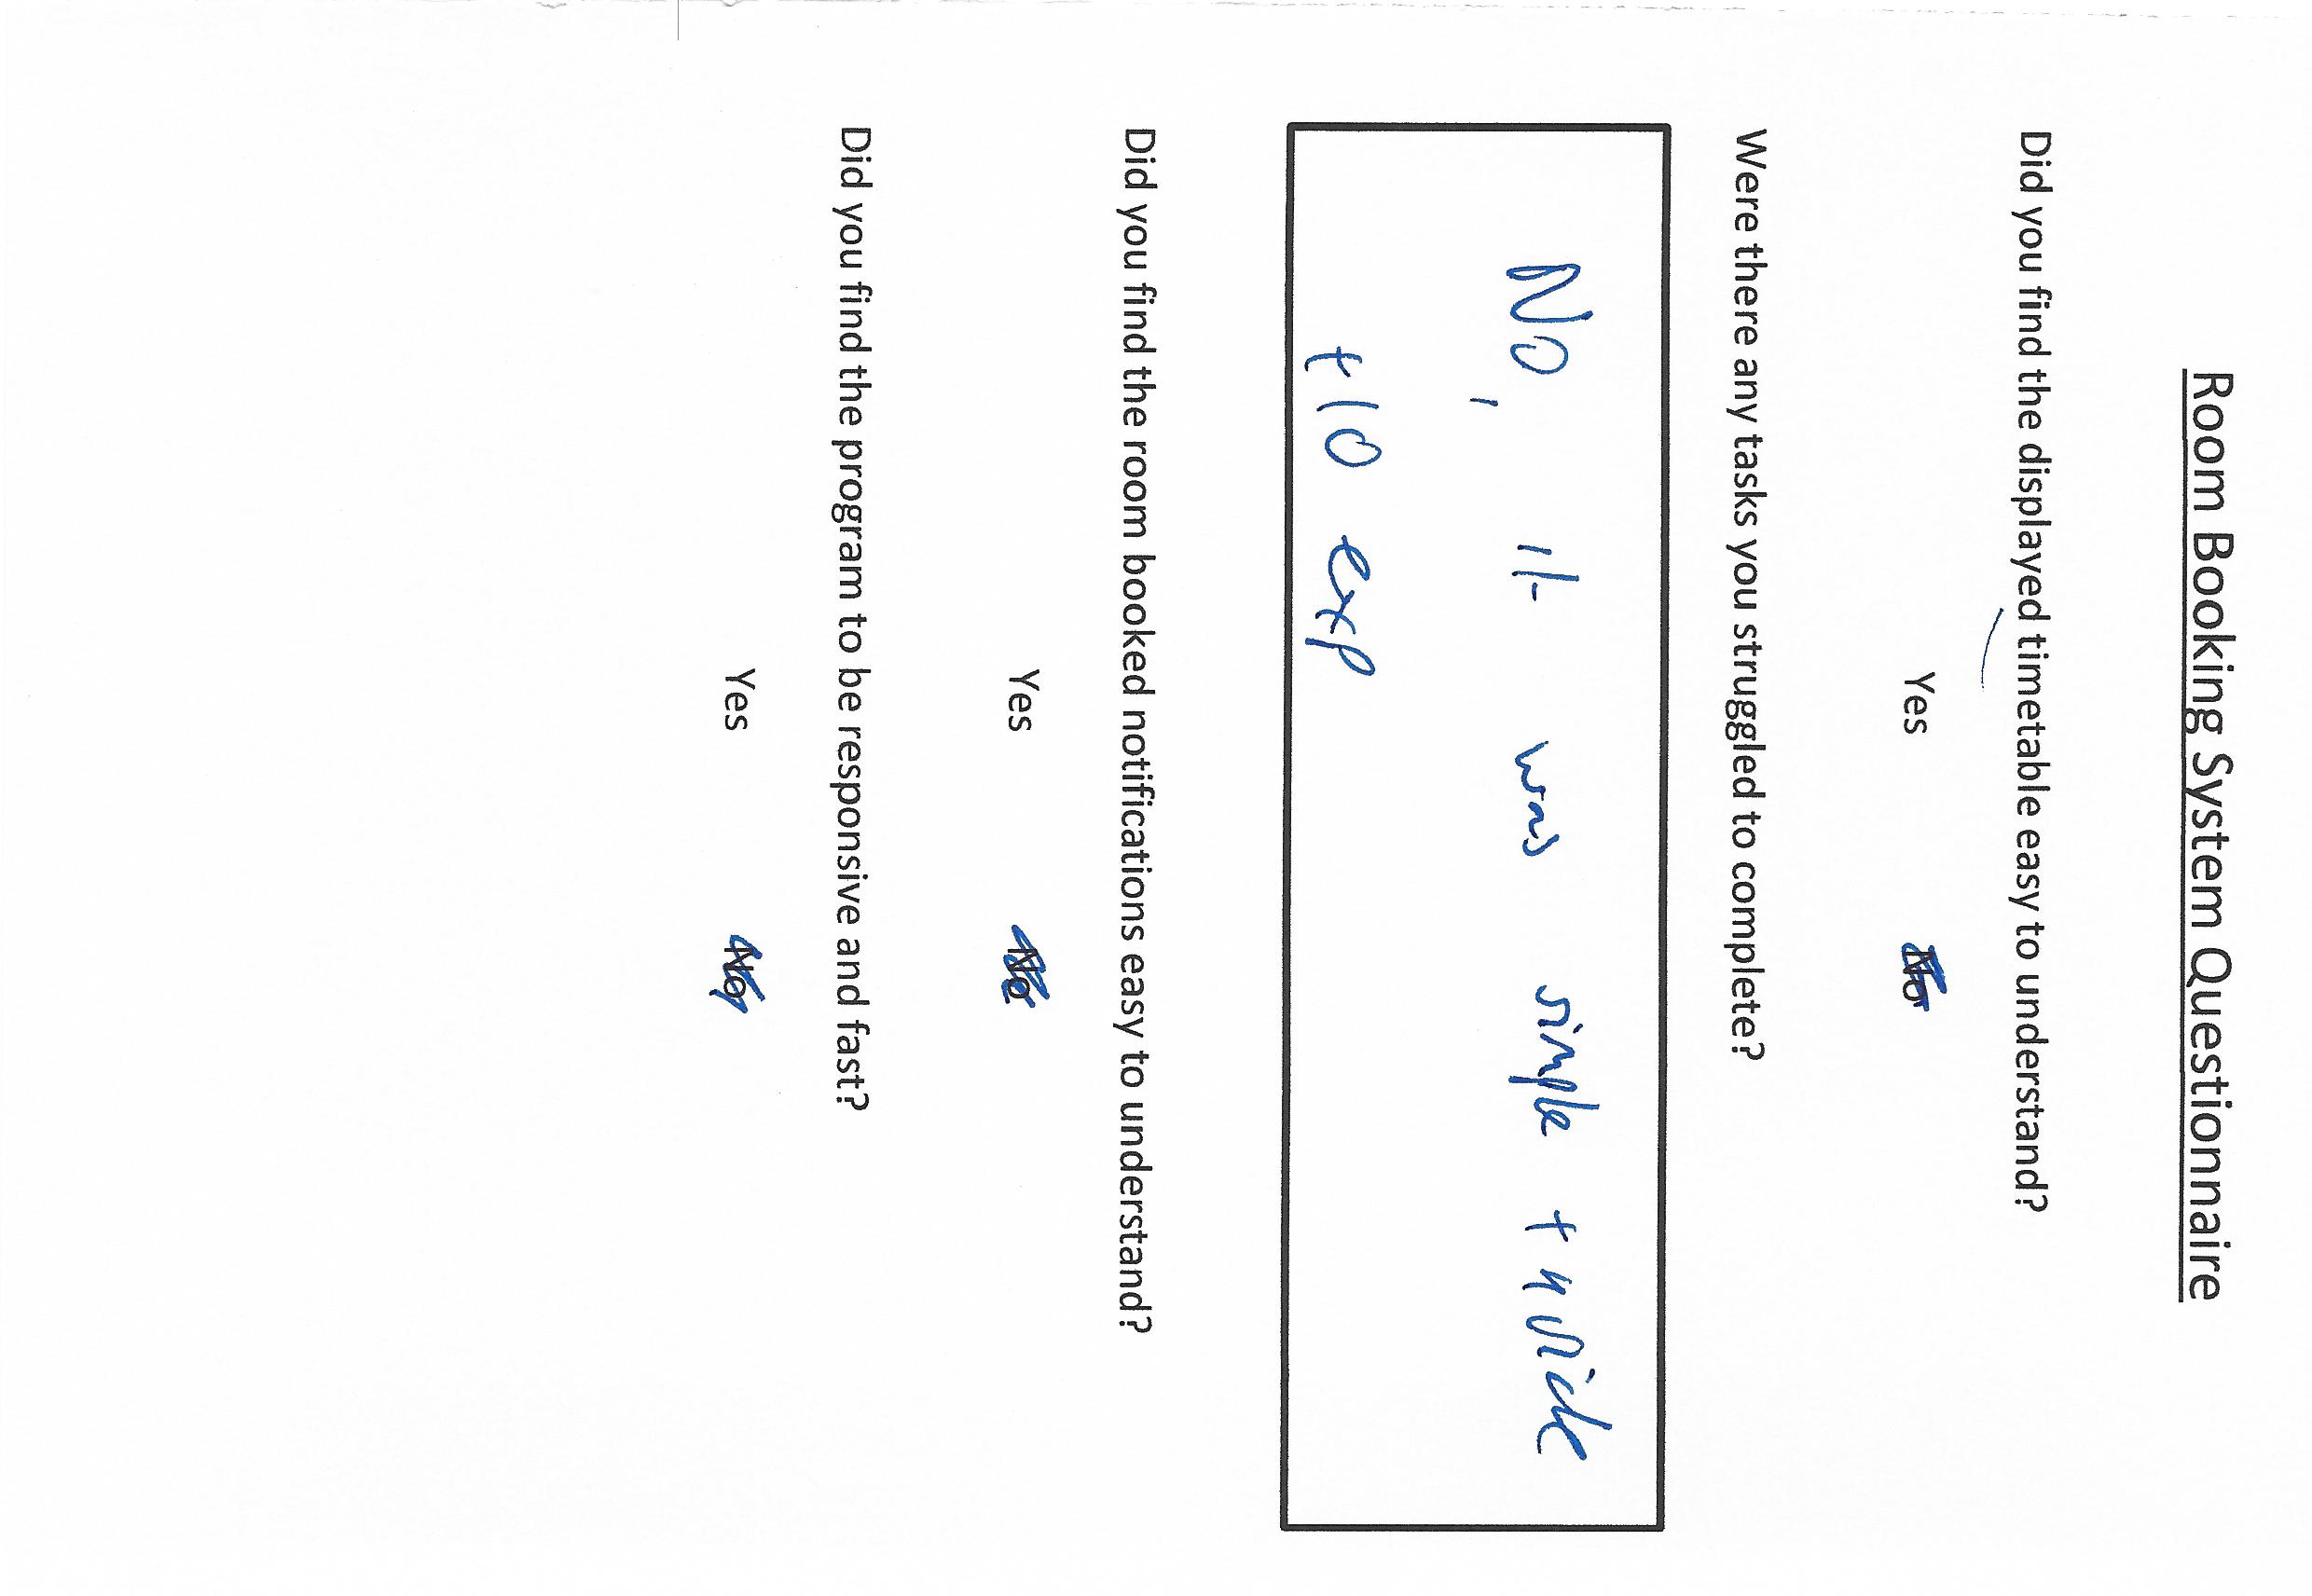 Room Booking System Questionnaire
Did you find the displayed timetable easy to understand?
Yes No
Were there any tasks you struggled to complete?
No, it was simple + quick
+10 exp
Did you find the room booked notifications easy to understand?
Yes No
Did you find the program to be responsive and fast?
Yes No